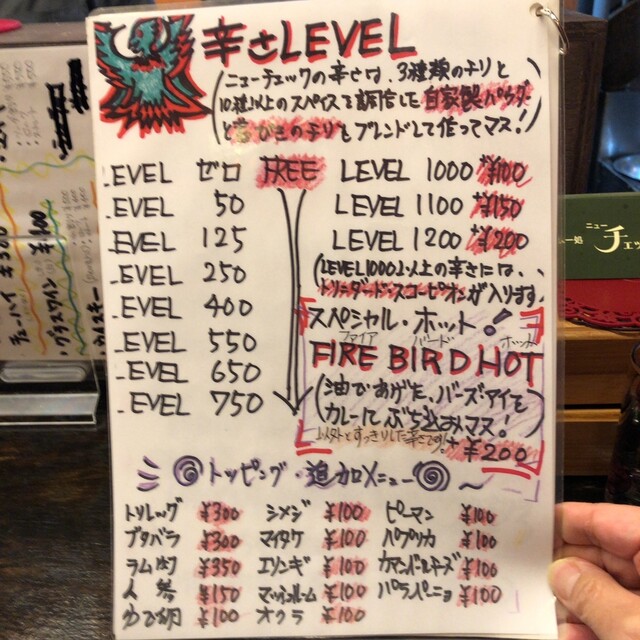 辛さLEVEL
ニューチェックの辛さは、3種類のチリと
10種以上のスパイスを調合した自家製パウダー
のチリとブレンドして作ってマス!
LEVEL ゼロ FREE
LEVEL 50
LEVEL 125
LEVEL 250
LEVEL 400
LEVEL 550
LEVEL 650
LEVEL 750
LEVEL 1000 +¥100
LEVEL 1100 +¥150
LEVEL 1200 +¥200
(LEVEL1000以上の辛さには、
トリニダード・スコーピオンが入ります。
スペシャル・ホット!
ファイア バード ホット
FIRE BIRD HOT
(油であげた、バーズアイを
カレーにぶち込みマス!)
以外とすっきりした辛さです! +¥200
トッピング・追加メニュー
トリレッグ ¥300 シメジ ¥100 ピーマン ¥100
ブタバラ ¥300 マイタケ ¥100 パプリカ ¥100
ラム肉 ¥350 エリンギ ¥100 カマンベールチーズ ¥100
人参 ¥150 マッシュルーム ¥100 ハラペーニョ ¥100
ゆで卵 ¥100 オクラ ¥100
チューハイ ¥300
・グラスワイン ¥400
ニュー
チェ